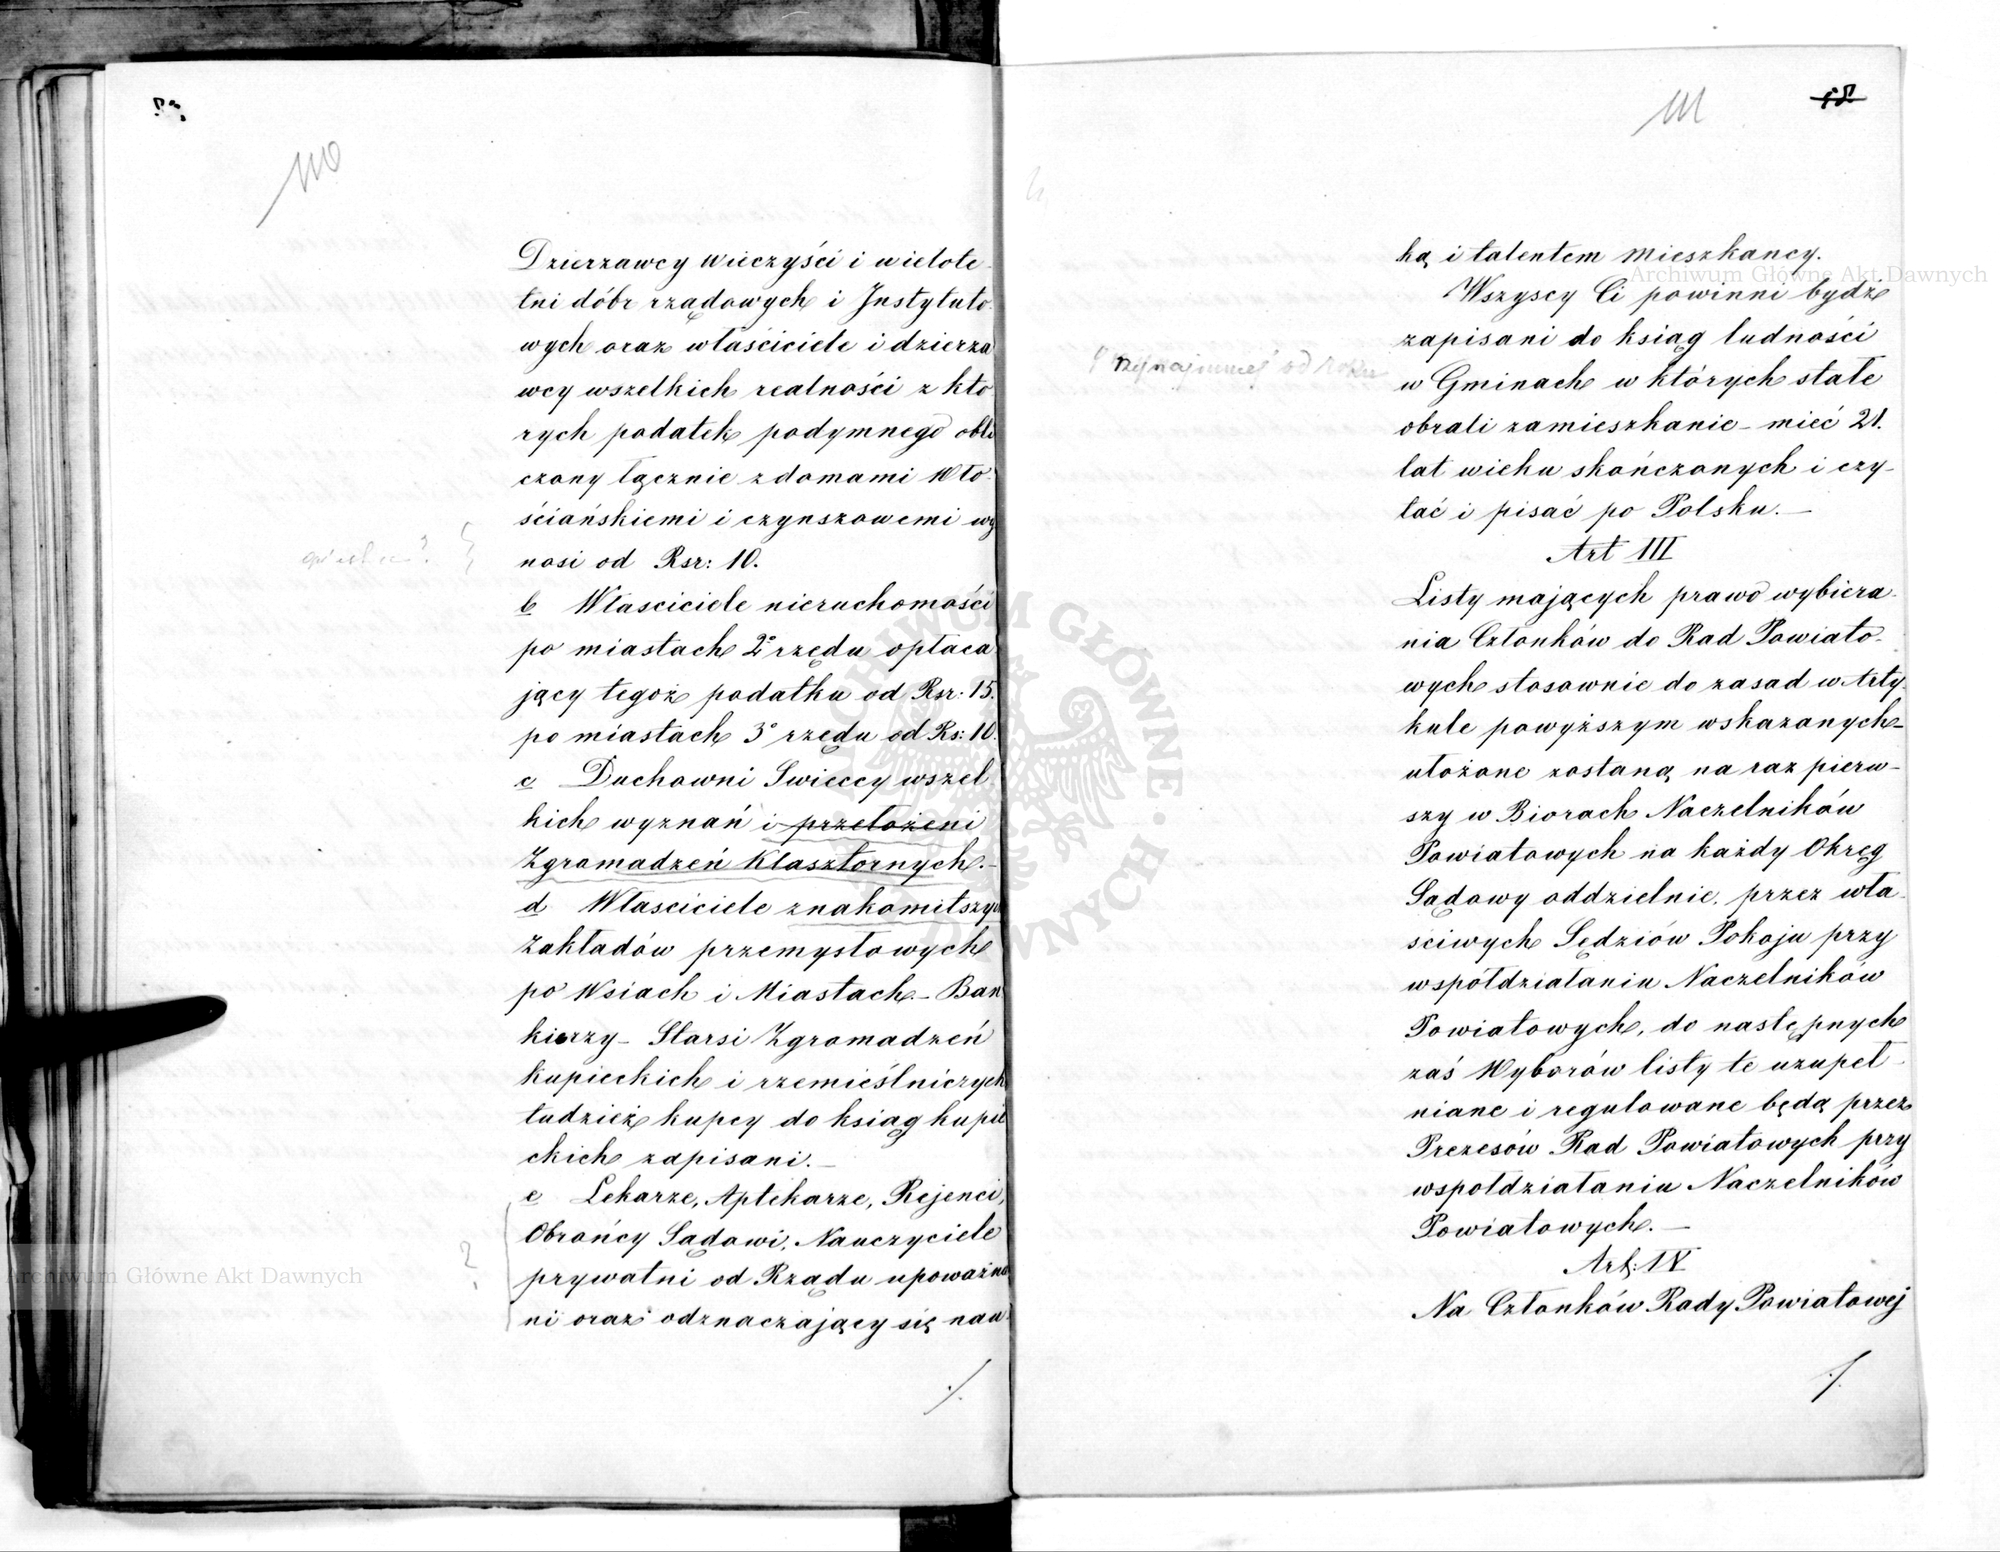 110
Dzierzawcy wieczyści i wielole-
tni dóbr rządowych i Instytuto-
wych oraz właściciele i dzierza
wcy wszelkich realności z kto-
rych podatek podymnego obli
czony łącznie z domami Wło-
ściańskiemi i czynszowemi wy
nosi od Rsr: 10.
b Własciciele nieruchomości
po miastach 2° rzędu opłaca
jący tegoż podatku od Rsr: 15.
po miastach 3° rzędu od Rs: 10.
c Duchowni Swieccy wszel
kich wyznań i przełożeni
Zgromadzeń Klasztornych.-
d Własciciele znakomitszych
Zakładów przemysłowych
po Wsiach i Miastach - Ban
kierzy - Starsi Zgromadzeń
kupieckich i rzemieślniczych
tudzież kupcy do ksiąg kupie
ckich zapisani.-
e Lekarze, Aptekarze, Rejenci,
Obrońcy Sądowi, Nauczyciele
?
prywatni od Rządu upoważnie
ni oraz odznaczający się nau
./.
111
ką i talentem Mieszkancy.
Wszyscy Ci powinni bydź
zapisani do ksiąg ludności
przynajmniej od roku
w Gminach w których stałe
obrali zamieszkanie - mieć 21.
lat wieku skończonych i czy-
tać i pisać po Polsku.-
Art III
Listy mających prawo wybiera-
nia Członków do Rad Powiato-
wych stosownie do zasad w Arty-
kule powyższym wskazanych-
ułożone zostaną na raz pierw-
szy w Biorach Naczelników
Powiatowych na każdy Okręg
Sądowy oddzielnie, przez wła-
ściwych Sędziów Pokoju przy
współdziałaniu Naczelników
Powiatowych, do następnych
zaś Wyborów listy te uzupeł-
niane i regulowane będą przez
Prezesów Rad Powiatowych przy
wspołdziałaniu Naczelników
Powiatowych.-
Art: IV
Na Członków Rady Powiatowej
./.
Archiwum Główne Akt Dawnych
Archiwum Główne Akt Dawnych
ARCHIWUM GŁÓWNE AKT DAWNYCH